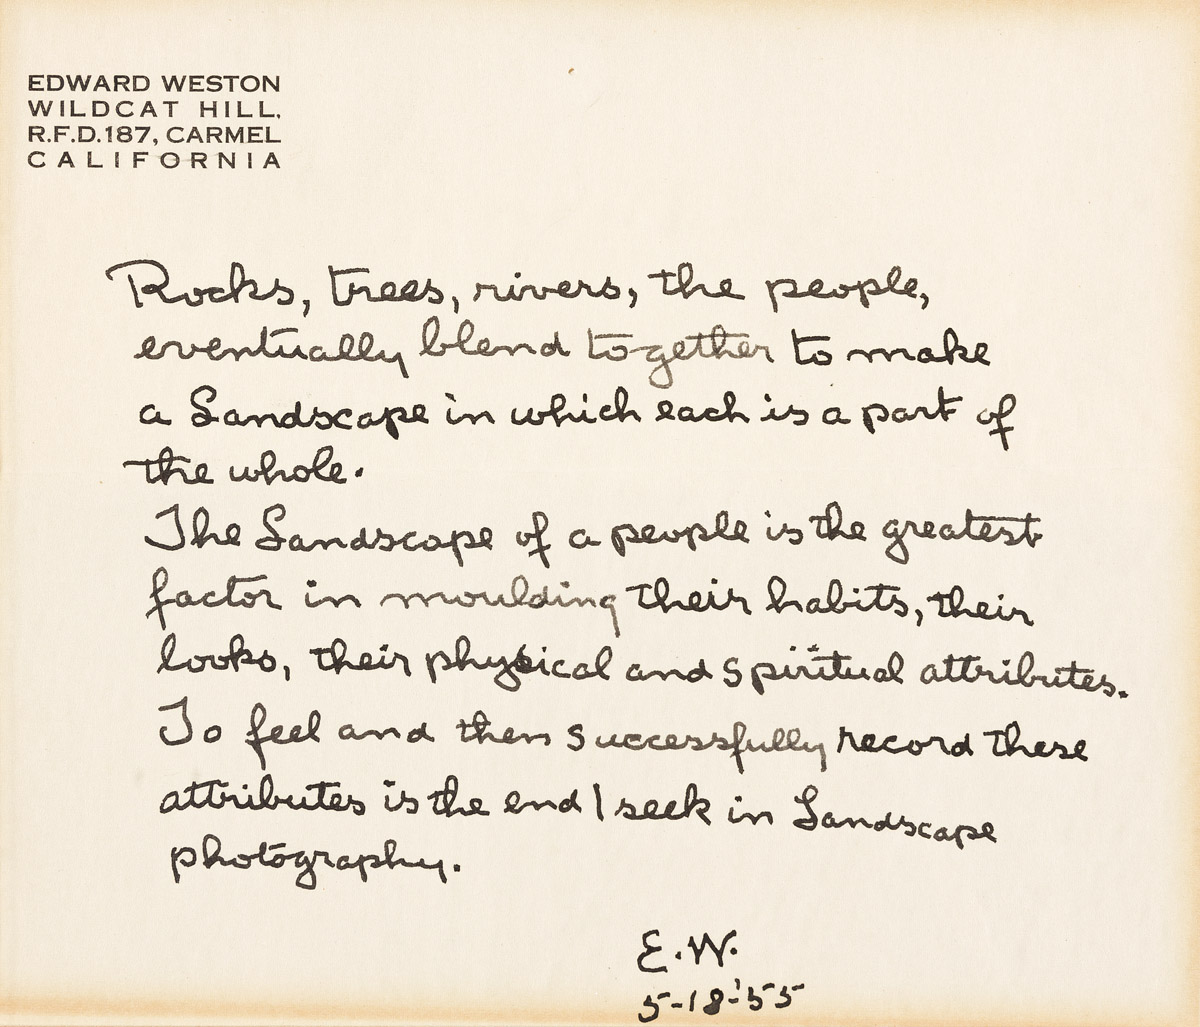 EDWARD WESTON
WILDCAT HILL,
R.F.D.187, CARMEL
CALIFORNIA
Rocks, trees, rivers, the people,
eventually blend together to make
a Landscape in which each is a part of
the whole.
The Landscape of a people is the greatest
factor in moulding their habits, their
looks, their physical and spiritual attributes.
To feel and then successfully record these
attributes is the end I seek in Landscape
photography.
E.W.
5-18-'55